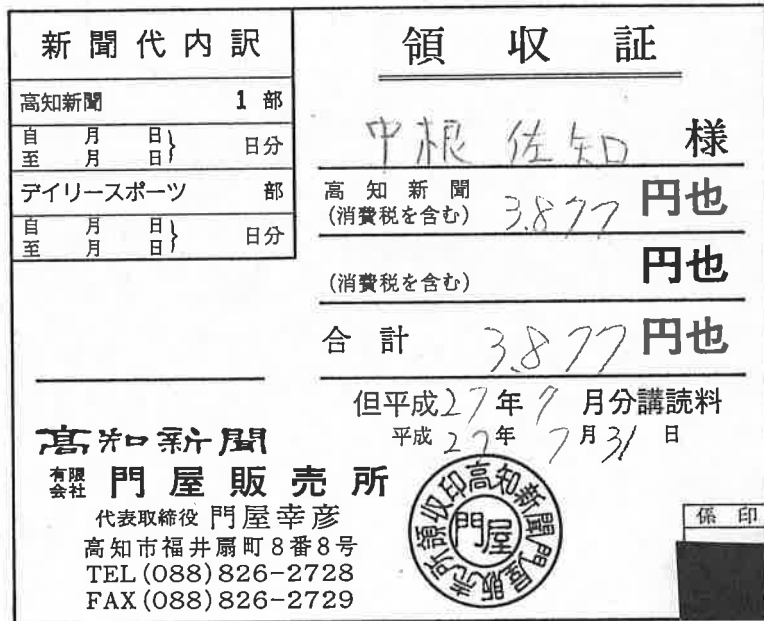 新聞代内訳
高知新聞 1 部
自 月 日
至 月 日 } 日分
デイリースポーツ 部
自 月 日
至 月 日 } 日分
領収証
中根 佐知 様
高知新聞
(消費税を含む) 3,877 円也
(消費税を含む) 円也
合計 3,877 円也
但平成27年7月分講読料
平成27年7月31日
高知新聞
有限会社 門屋販売所
代表取締役 門屋幸彦
高知市福井扇町8番8号
TEL(088)826-2728
FAX(088)826-2729
高知新聞門屋販売所領収印
門屋
係印